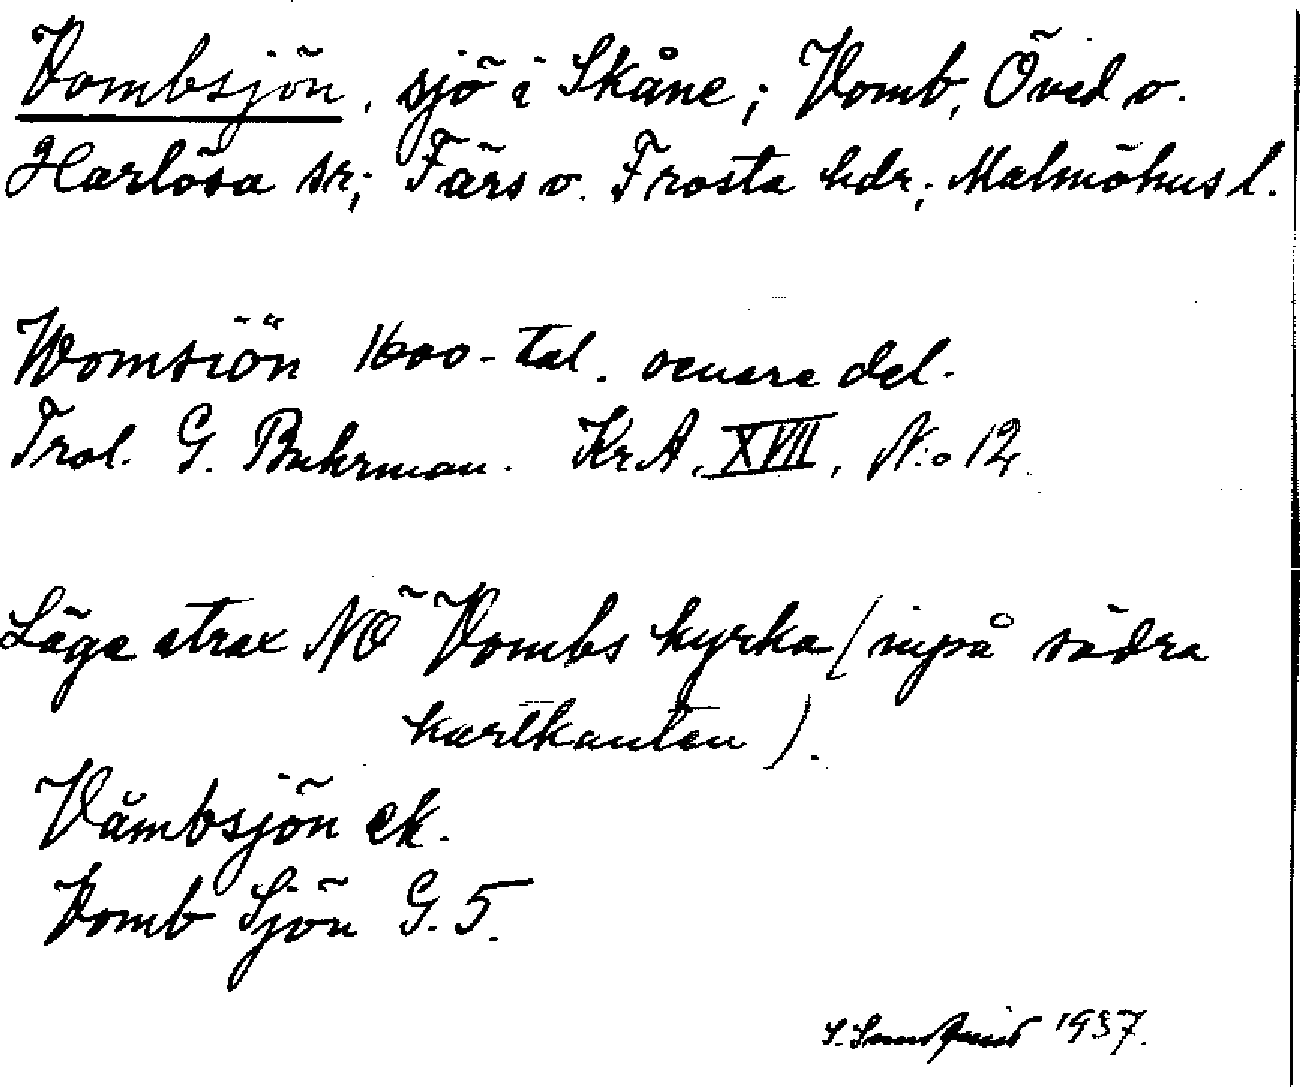 Vombsjön, sjö i Skåne; Vomb, Öved o.
Harlösa sr; Färs o. Frosta hdr; Malmöhus l.
Womsiön 1600-tal. senare del.
Trol. G. Buhrman. Kr.A. XVII, N:o 12.
Läge strax NÖ Vombs kyrka (inpå södra
kartkanten).
Våmbsjön ek.
Vomb Sjön G. 5.
1937.